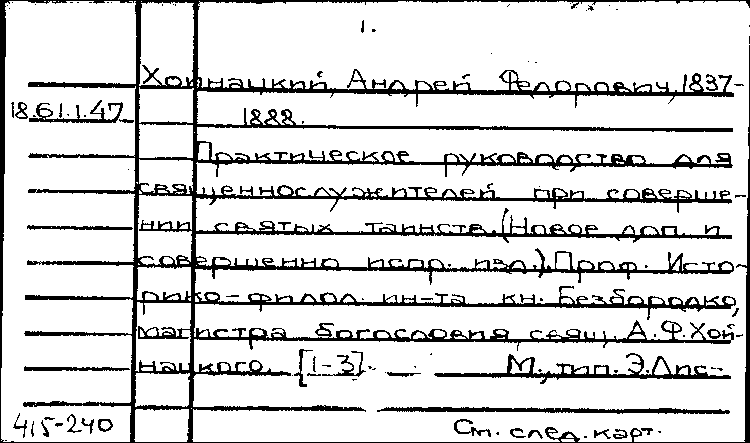 1.
Хойнацкий, Андрей Федорович, 1837-
18.61.1.47
1888.
Практическое руководство для
священнослужителей при соверше-
нии святых таинств. (Новое доп. и
совершенно испр. изд.). Проф. Исто-
рико-филол. ин-та кн. Безбородко,
магистра богословия, свящ. А.Ф. Хой-
нацкого. [1-3]. — М., тип. Э. Лис-
415-240
См. след. карт.